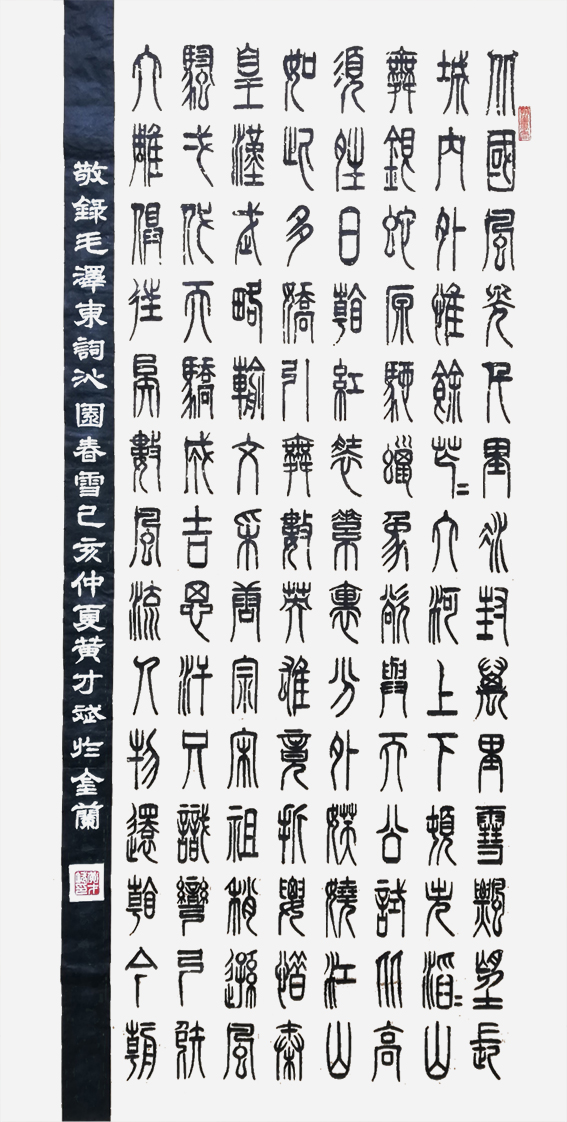 北國風光千里冰封萬里雪飄望長
城內外惟餘莽〻大河上下頓失滔〻山
舞銀蛇原馳蠟象欲與天公試比高
須晴日看紅裝素裹分外妖嬈江山
如此多嬌引無數英雄竟折腰惜秦
皇漢武略輸文采唐宗宋祖稍遜風
騷弌代天驕成吉思汗只識彎弓射
大雕俱往矣數風流人物還看今朝
敬錄毛澤東詞沁園春雪己亥仲夏黃才斌於金蘭